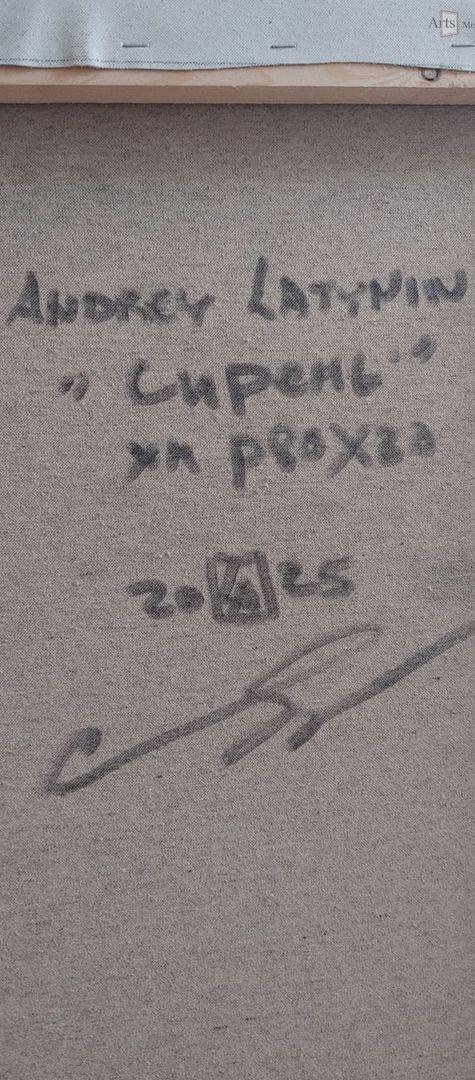 Arts
ANDREY LATYNIN
"Сирень"
хм р80х70
20 25